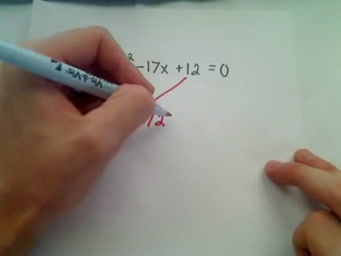 ² -17x +12 = 0
12